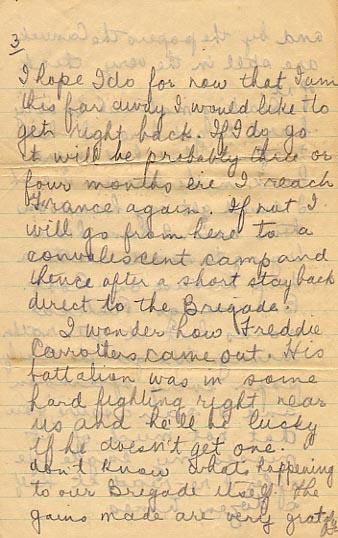 3
I hope I do for now that I am
this far away I would like to
get right back. If I do go
it will be probably three or
four months ere I reach
France again. If not I
will go from here to a
convalescent camp and
thence after a short stay back
direct to the Brigade.
I wonder how Freddie
Carrothers came out. His
battalion was in some
hard fighting right near
us and he'll be lucky
if he doesn't get one. I
don't know what's happening
to our Brigade itself. The
gains made are very